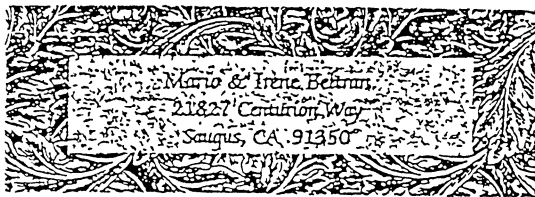 Mario & Irene Beltran
21827 Centurion Way
Saugus, CA 91350